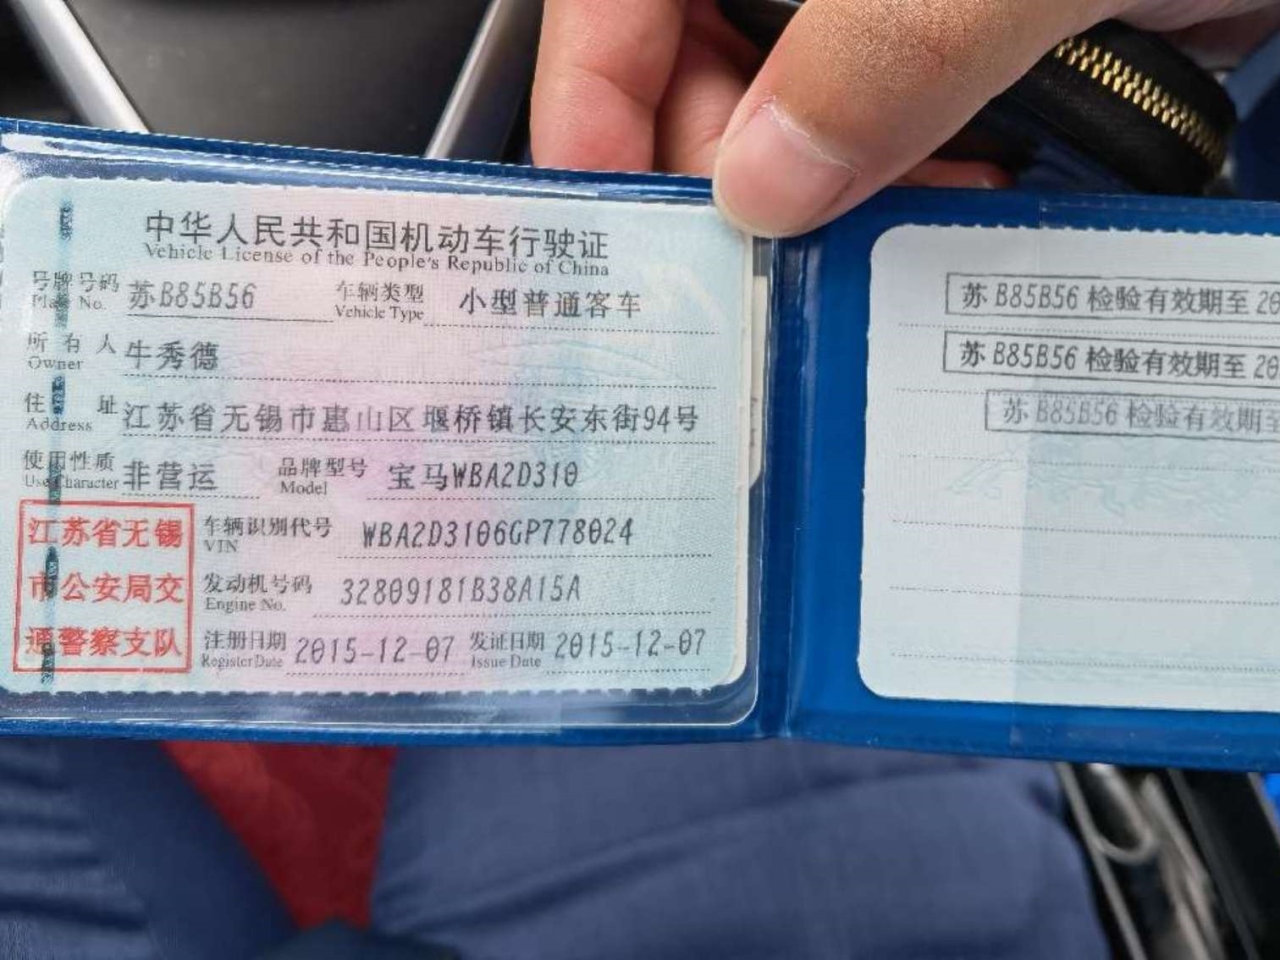 中华人民共和国机动车行驶证
Vehicle License of the People's Republic of China
号牌号码 苏B85B56 车辆类型 小型普通客车
Plate No. Vehicle Type
所有人 牛秀德
Owner
住址 江苏省无锡市惠山区堰桥镇长安东街94号
Address
使用性质 非营运 品牌型号 宝马WBA2D310
Use Character Model
江苏省无锡
市公安局交
通警察支队
车辆识别代号 WBA2D3106GP778024
VIN
发动机号码 32809181B38A15A
Engine No.
注册日期 2015-12-07 发证日期 2015-12-07
Register Date Issue Date
苏B85B56 检验有效期至 20
苏B85B56 检验有效期至 20
苏B85B56 检验有效期至